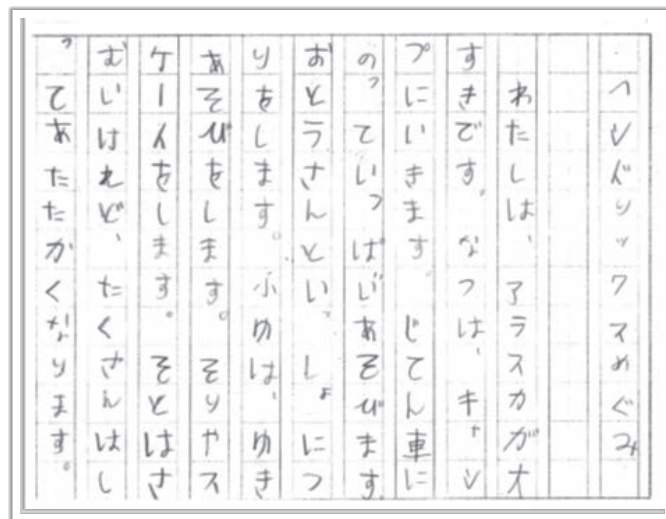 ヘンドリックスめぐみ
わたしは、アラスカが大
すきです。なつは、キャン
プにいきます。じてん車に
のっていっぱいあそびます。
おとうさんといっしょにつ
りをします。ふゆは、ゆき
あそびをします。そりやス
ケートをします。そとはさ
むいけれど、たくさんはし
ってあたたかくなります。